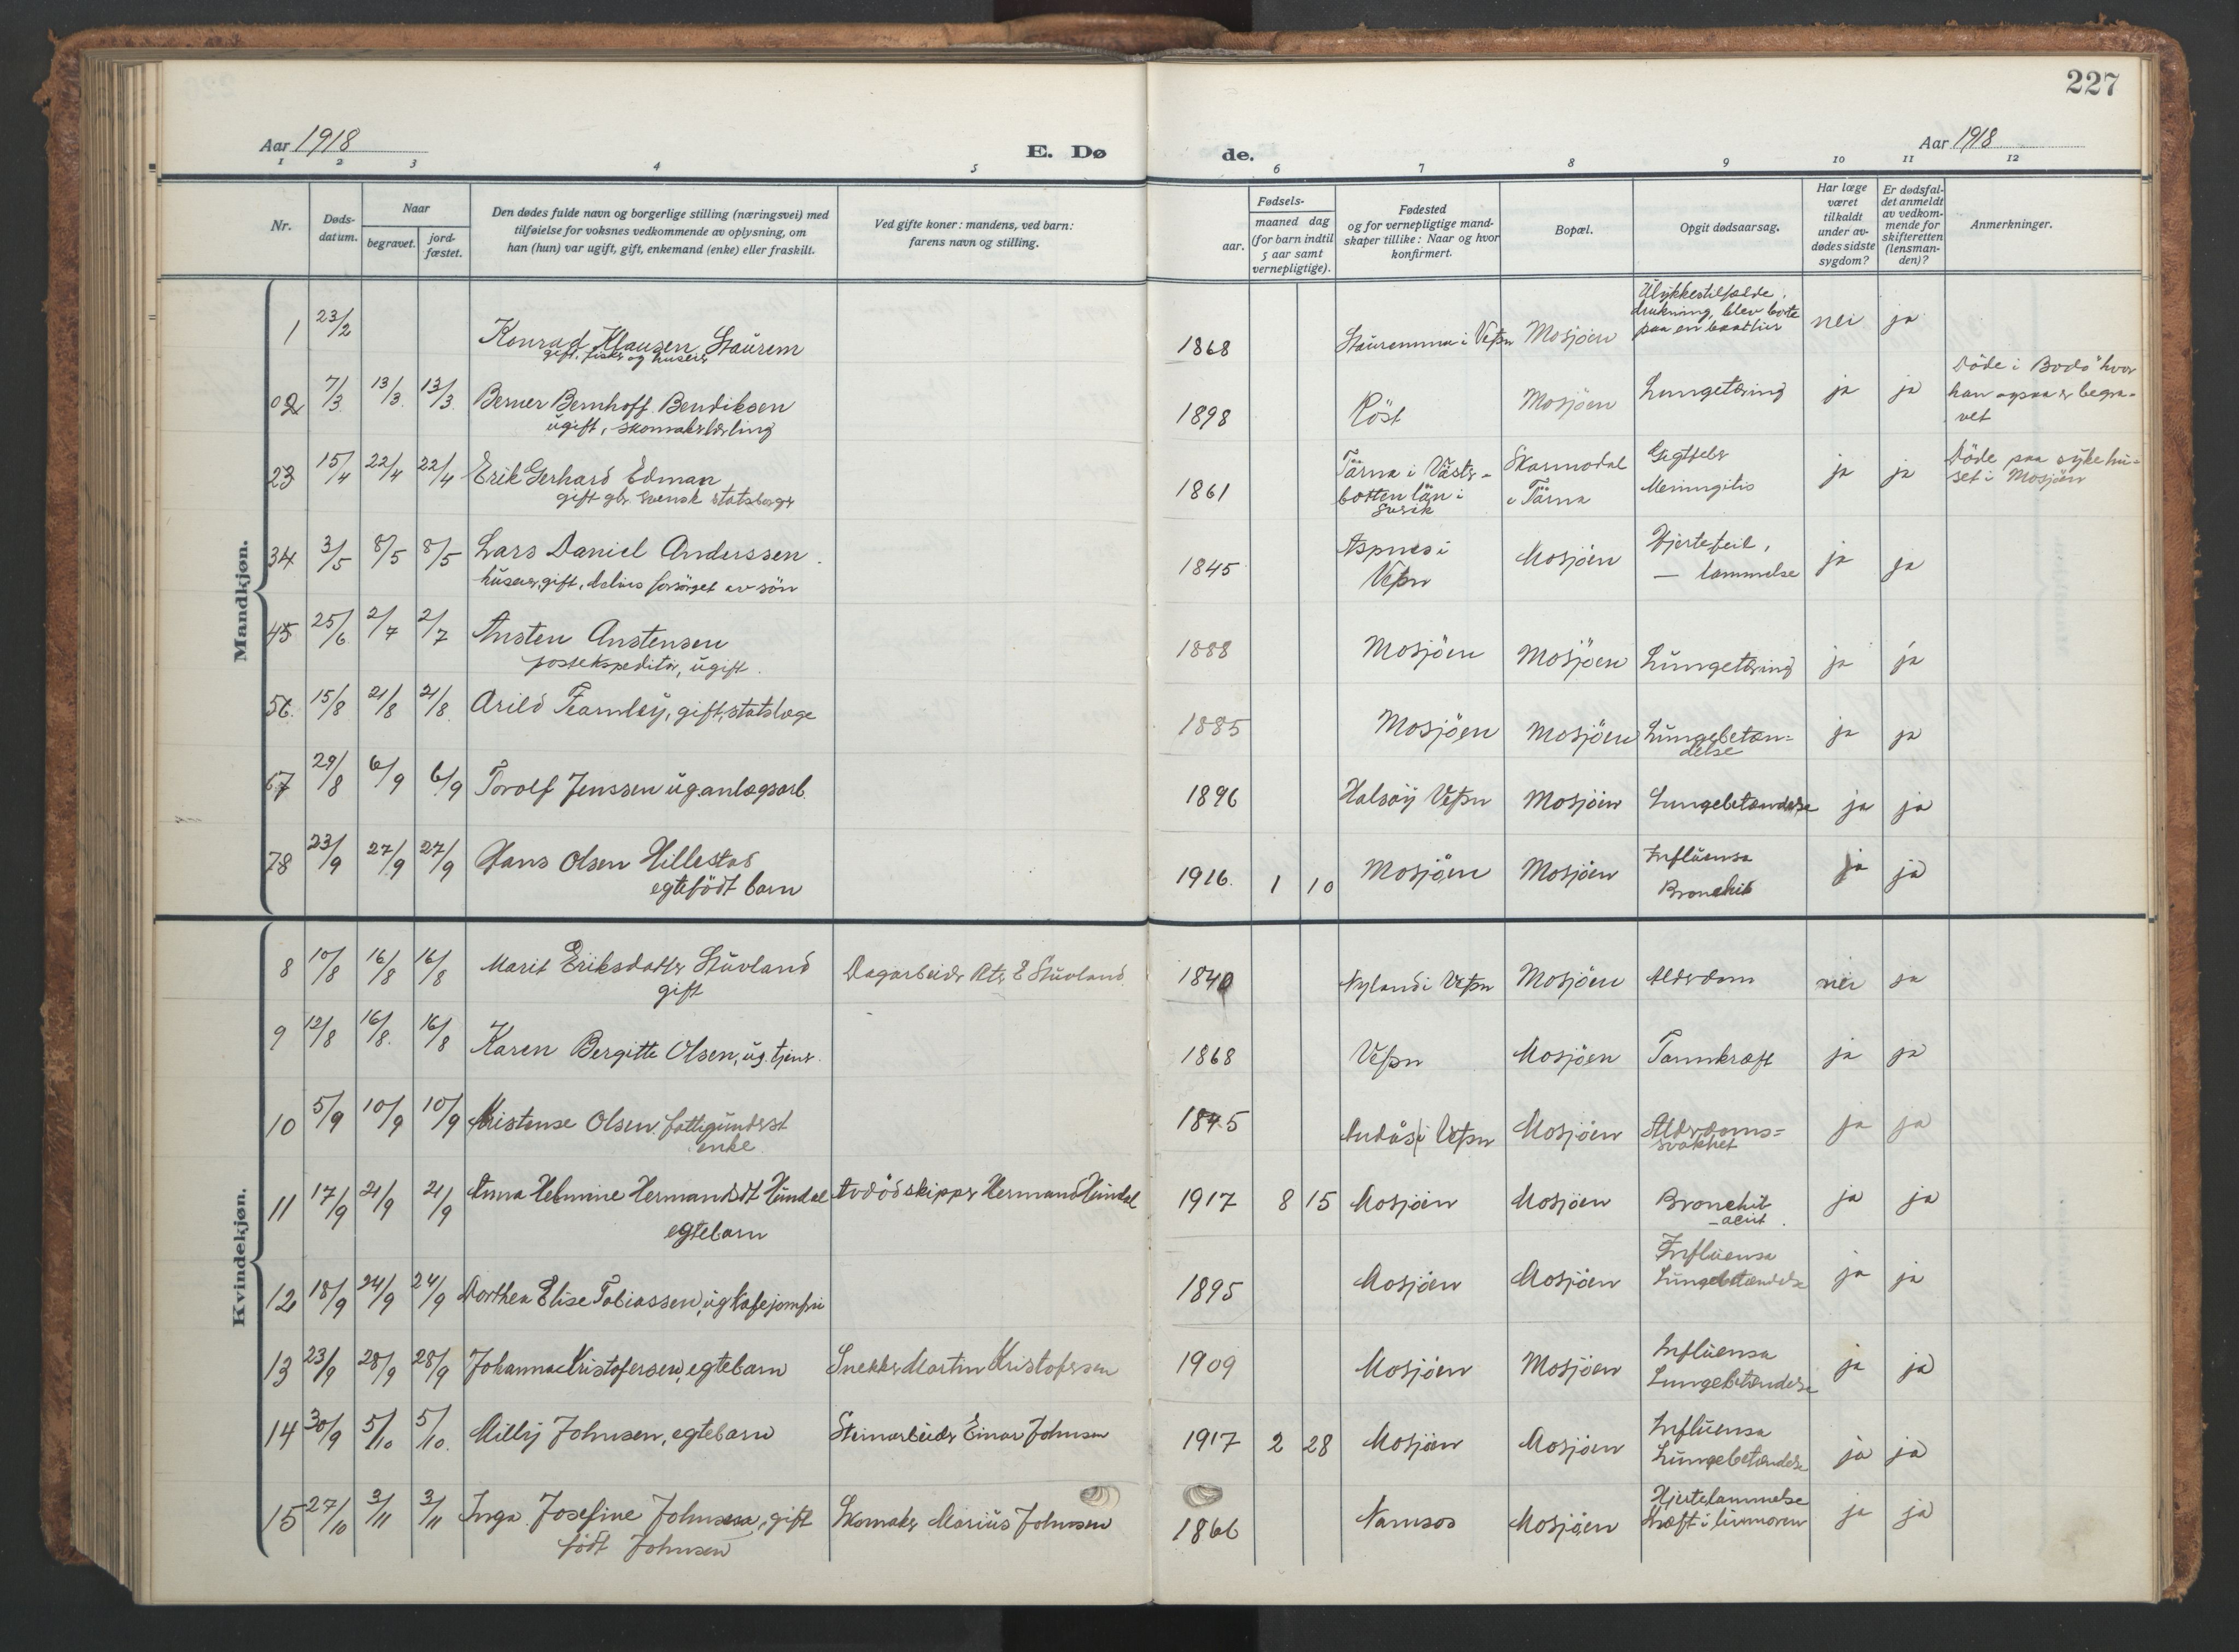 227
Aar 1918
E. Dø
de.
Aar 1918
1 2 3 4 5 6 7 8 9 10 11 12
Nr.
Døds-
datum.
Naar
begravet.
jord-
fæstet.
Den dødes fulde navn og borgerlige stilling (næringsvei) med
tilføielse for voksnes vedkommende av oplysning, om
han (hun) var ugift, gift, enkemand (enke) eller fraskilt.
Ved gifte koner: mandens, ved barn:
farens navn og stilling.
Fødsels-
aar.
maaned dag
(for barn indtil
5 aar samt
vernepligtige).
Fødested
og for vernepligtige mand-
skaper tillike: Naar og hvor
konfirmert.
Bopæl.
Opgit dødsaarsag.
Har læge
været
tilkaldt
under av-
dødes sidste
sygdom?
Er dødsfal-
det anmeldt
av vedkom-
mende for
skifteretten
(lensman-
den)?
Anmerkninger.
Mandkjøn.
1 23/2 Konrad Klausen Staurem
gift, fisker og huseier
1868 Stauremma i Vefsn Mosjöen
Ulykkestilfælde,
drukning, blev borte
paa en baattur
nei ja
2 7/3 13/3 13/3 Berner Bernhoff Bendiksen
ugift, skomakerlærling
1898 Röst Mosjöen Lungetæring ja ja
Döde i Bodö hvor
han ogsaa er begra-
vet
23 15/4 22/4 22/4 Erik Gerhard Edman
gift gbr. svensk statsborger
1861 Tärna i Väster-
botten län i
Sverik
Skarmodal
i Tärna
Gigtfeber
Meningitis
ja ja
Döde paa sykehu-
set i Mosjöen
34 3/5 8/5 8/5 Lars Daniel Anderssen
huseier, gift, delvis forsörget av sön
1845 Aspnes i
Vefsn
Mosjöen
Hjertefeil,
— lammelse
ja ja
45 25/6 2/7 2/7 Ansten Anstensen
postekspeditör, ugift.
1888 Mosjöen Mosjöen Lungetæring ja ja
56 15/8 21/8 21/8 Arild Fearnley, gift, statslæge
1885 Mosjöen Mosjöen Lungebetæn-
delse
ja ja
67 29/8 6/9 6/9 Torolf Jenssen ug. anlægsarb.
1896 Halsöy Vefsn Mosjöen Lungebetændelse ja ja
78 23/9 27/9 27/9 Hans Olsen Hillestad
egtefödt barn
1916 1 10 Mosjöen Mosjöen
Influensa
Bronchit
ja ja
Kvindekjøn.
8 10/8 16/8 16/8 Marit Eriksdatter Stuvland
gift
Dagarbeider Ats E Stuvland
1840 Nyland i Vefsn Mosjöen Alderdom nei ja
9 12/8 16/8 16/8 Karen Bergitte Olsen, ug. tjener.
1868 Vefsn Mosjöen Tarmkræft ja ja
10 5/9 10/9 10/9 Kristense Olsen, fattigunderst
enke
1845 Andås i Vefsn Mosjöen Alderdoms-
svakhet
ja ja
11 17/9 21/9 21/9 Anna Helmine Hermandsdt Hundal
egtebarn
Avdöd skipper Hermand Hundal
1917 8 15 Mosjöen Mosjöen
Bronchit
— acut.
ja ja
12 18/9 24/9 24/9 Dorthea Elise Tobiassen, ug kafejomfru
1895 Mosjöen Mosjöen
Influensa
Lungebetændelse
ja ja
13 23/9 28/9 28/9 Johanna Kristofersen, egtebarn
Snekker Martin Kristofersen
1909 Mosjöen Mosjöen
Influensa
Lungebetændelse
ja ja
14 30/9 5/10 5/10 Milly Johnsen, egtebarn
Stenarbeider Einar Johnsen
1917 2 28 Mosjöen Mosjöen
Influensa
Lungebetændelse
ja ja
15 27/10 3/11 3/11 Inga Josefine Johnsen, gift
födt Johnsen
Skomaker Marius Johnsen
1866 Namsos Mosjöen
Hjertelammelse
Kræft i livmoren
ja ja